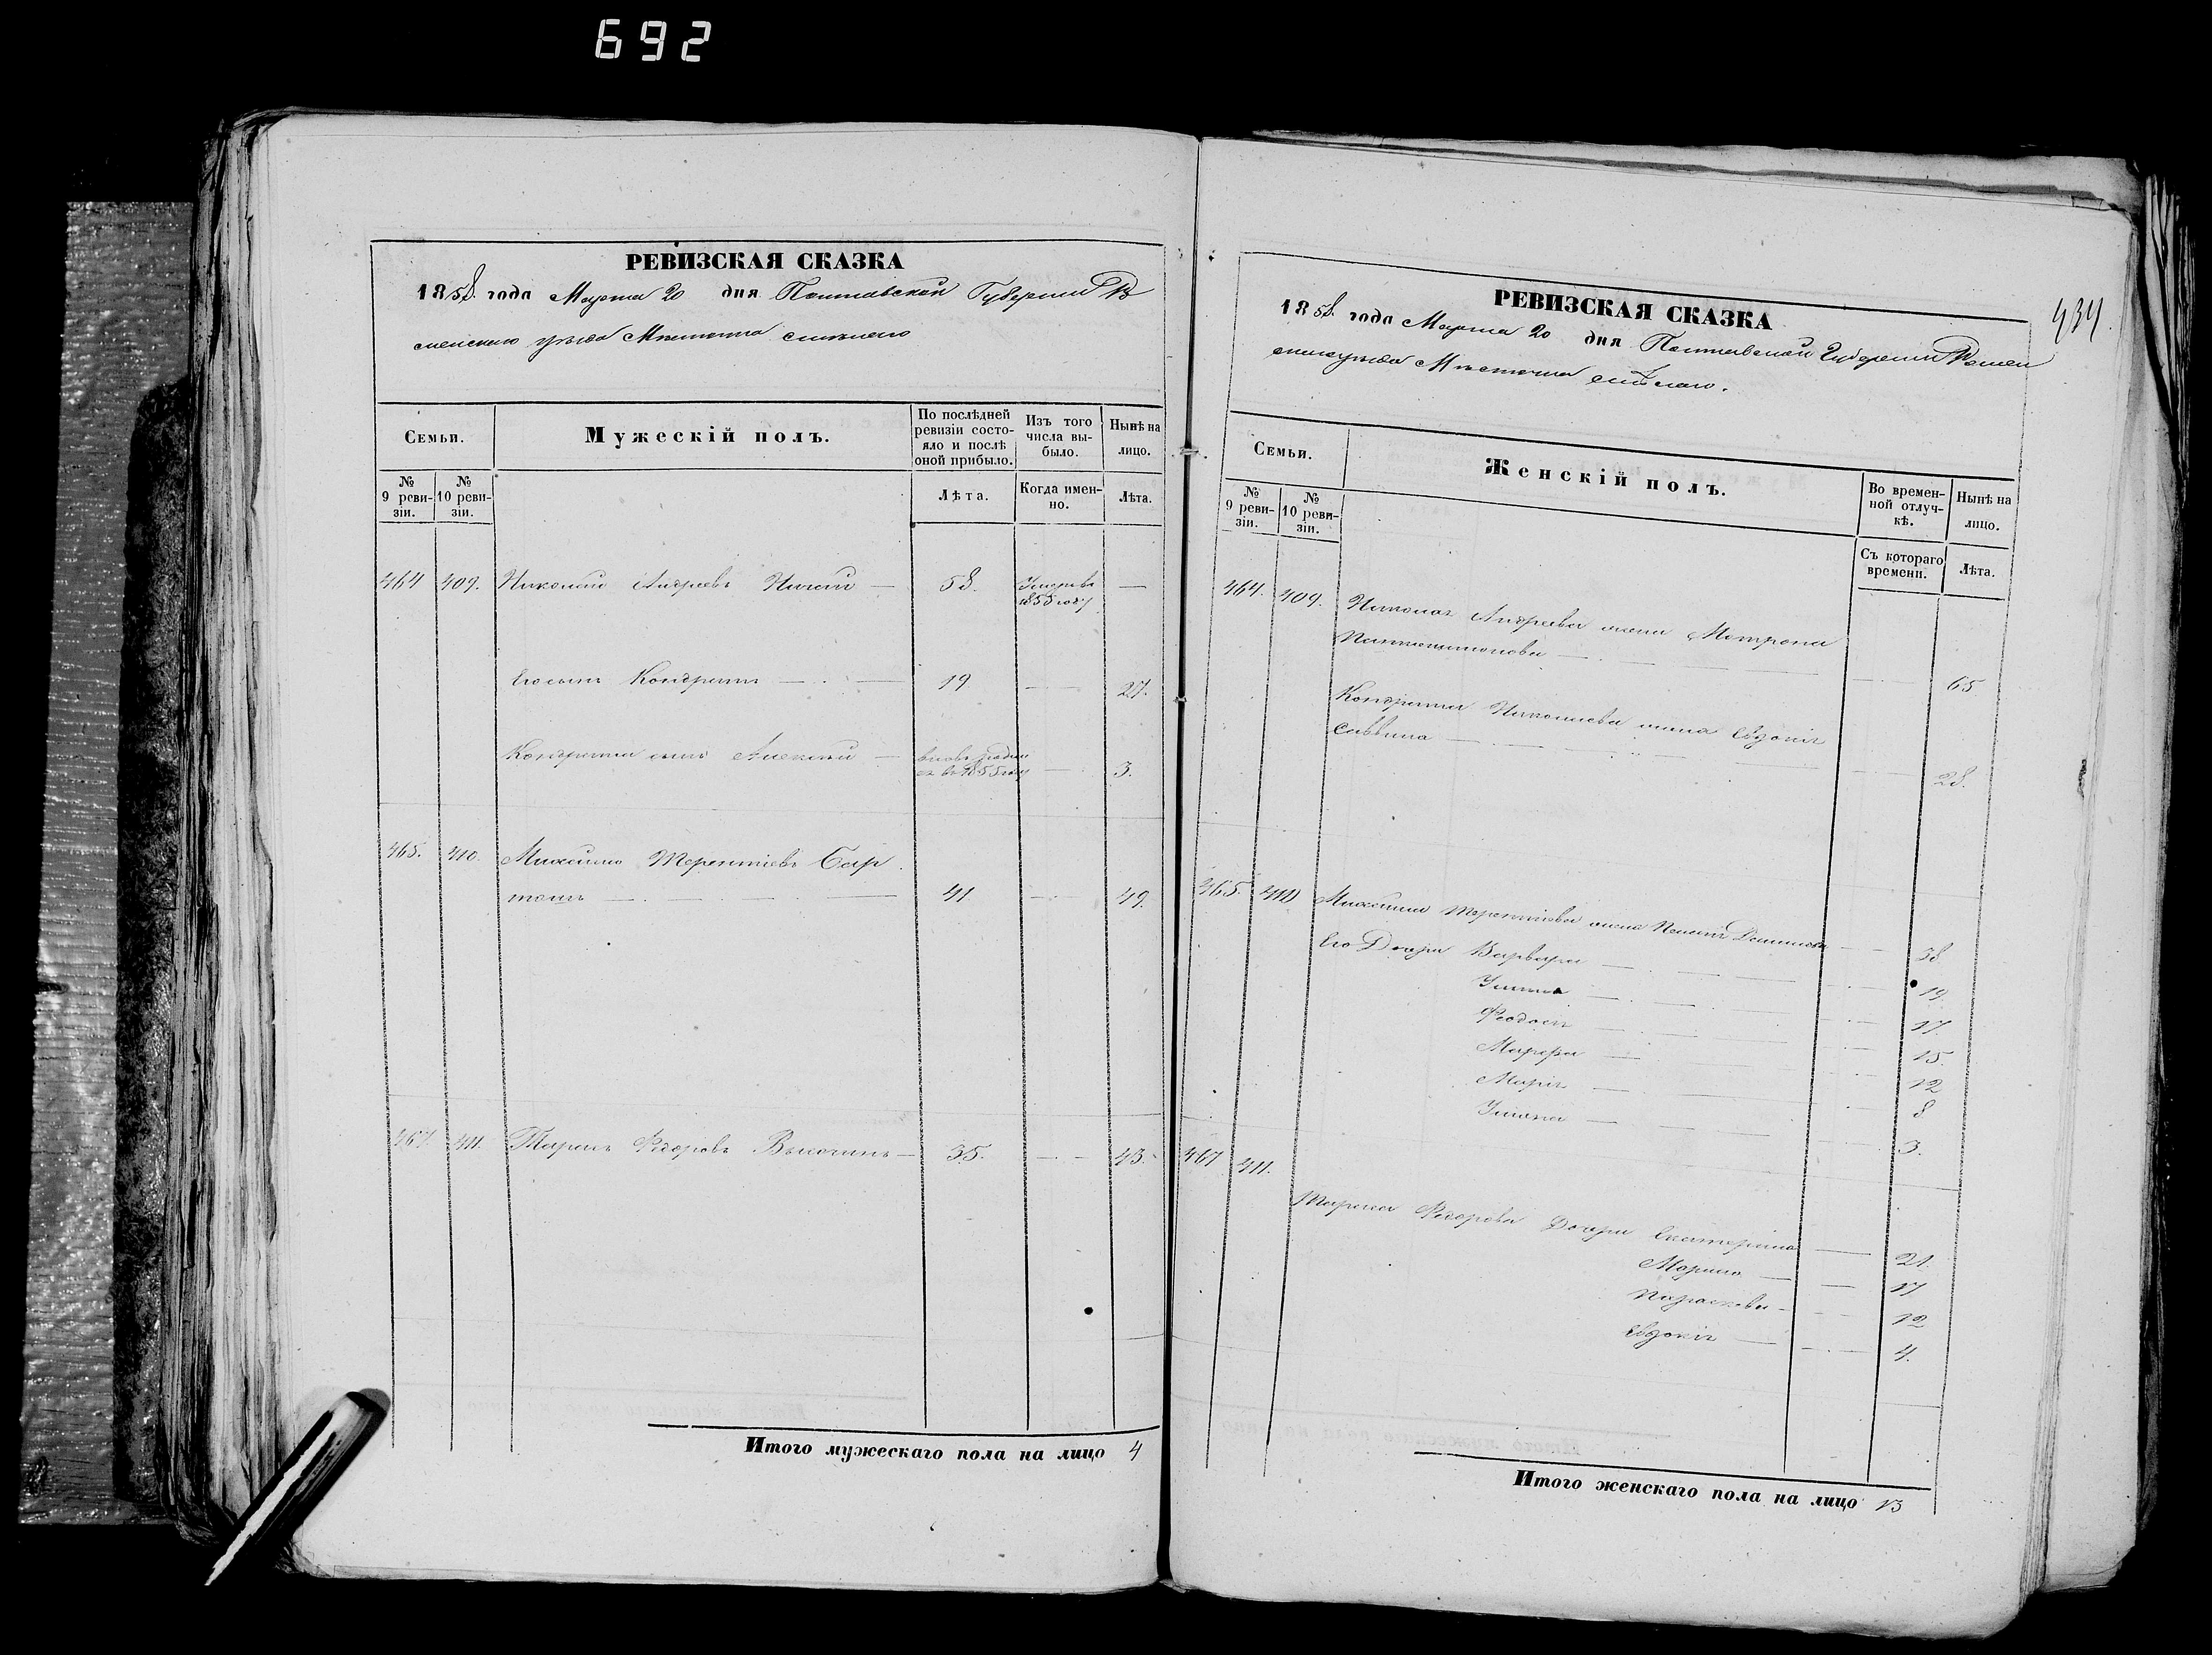 692
РЕВИЗСКАЯ СКАЗКА
1858. года Марта 20 дня Полтавской Губерніи Ро
менскаго уѣзда Мѣстечка Смѣлаго
Семьи.
Мужескій полъ.
По послѣдней ревизіи состояло и послѣ оной прибыло.
Изъ того числа выбыло.
Нынѣ на лицо.
№ 9 ревизіи.
№ 10 ревизіи.
Лѣта.
Когда именно.
Лѣта.
464 409. Николай Андреевъ 58. Умеръ въ 1855 году —
Его сынъ Кондратъ — 19 — 27.
Кондрата сынъ Алексѣй — вновь родился въ 1855 году — 3.
465. 410. Михайло Терентіевъ Бар
41 — 49.
467. 411. Тарасъ Ѳедоровъ — 35. — 43.
Итого мужескаго пола на лицо 4
434.
РЕВИЗСКАЯ СКАЗКА
1858. года Марта 20 дня Полтавской Губерніи Ромен
скаго уѣзда Мѣстечка Смѣлаго.
Семьи.
Женскій полъ.
Во временной отлучкѣ.
Нынѣ на лицо.
№ 9 ревизіи.
№ 10 ревизіи.
Съ котораго времени.
Лѣта.
464. 409. Николая Андреева жена Мотрона
Пантелимонова — 65.
Кондрата Николаева жена Евдокія
Саввина — 28.
465. 410 Михайла Терентіева жена 38
Его Дочери Варвара — 19
17
Феодосія — 15.
12
Марія — 8
Ульяна — 3.
467 411.
Тараса Ѳедорова Дочери Екатерина — 21.
Марина — 17
Параскева — 12
Евдокія — 4.
Итого женскаго пола на лицо 13